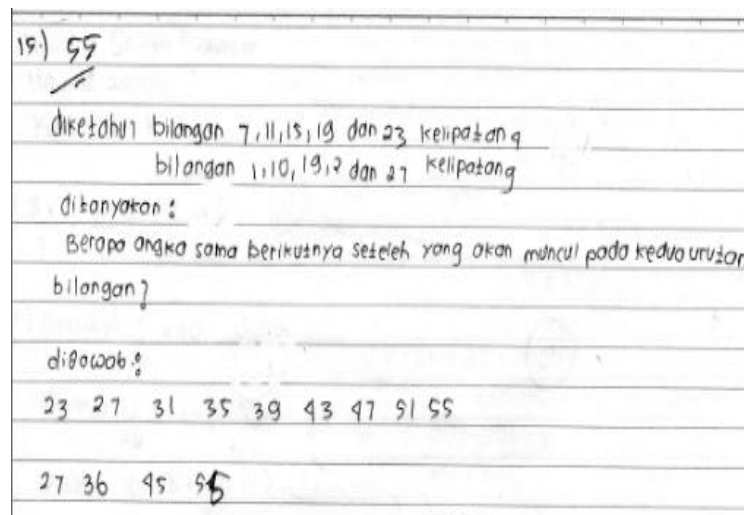 15.) 55
diketahui bilangan 7, 11, 15, 19 dan 23 kelipatan 4
bilangan 1, 10, 19, ? dan 27 kelipatan 9
ditanyakan :
Berapa angka sama berikutnya seteleh yang akan muncul pada kedua urutan
bilangan?
dijawab :
23 27 31 35 39 43 47 51 55
27 36 45 55